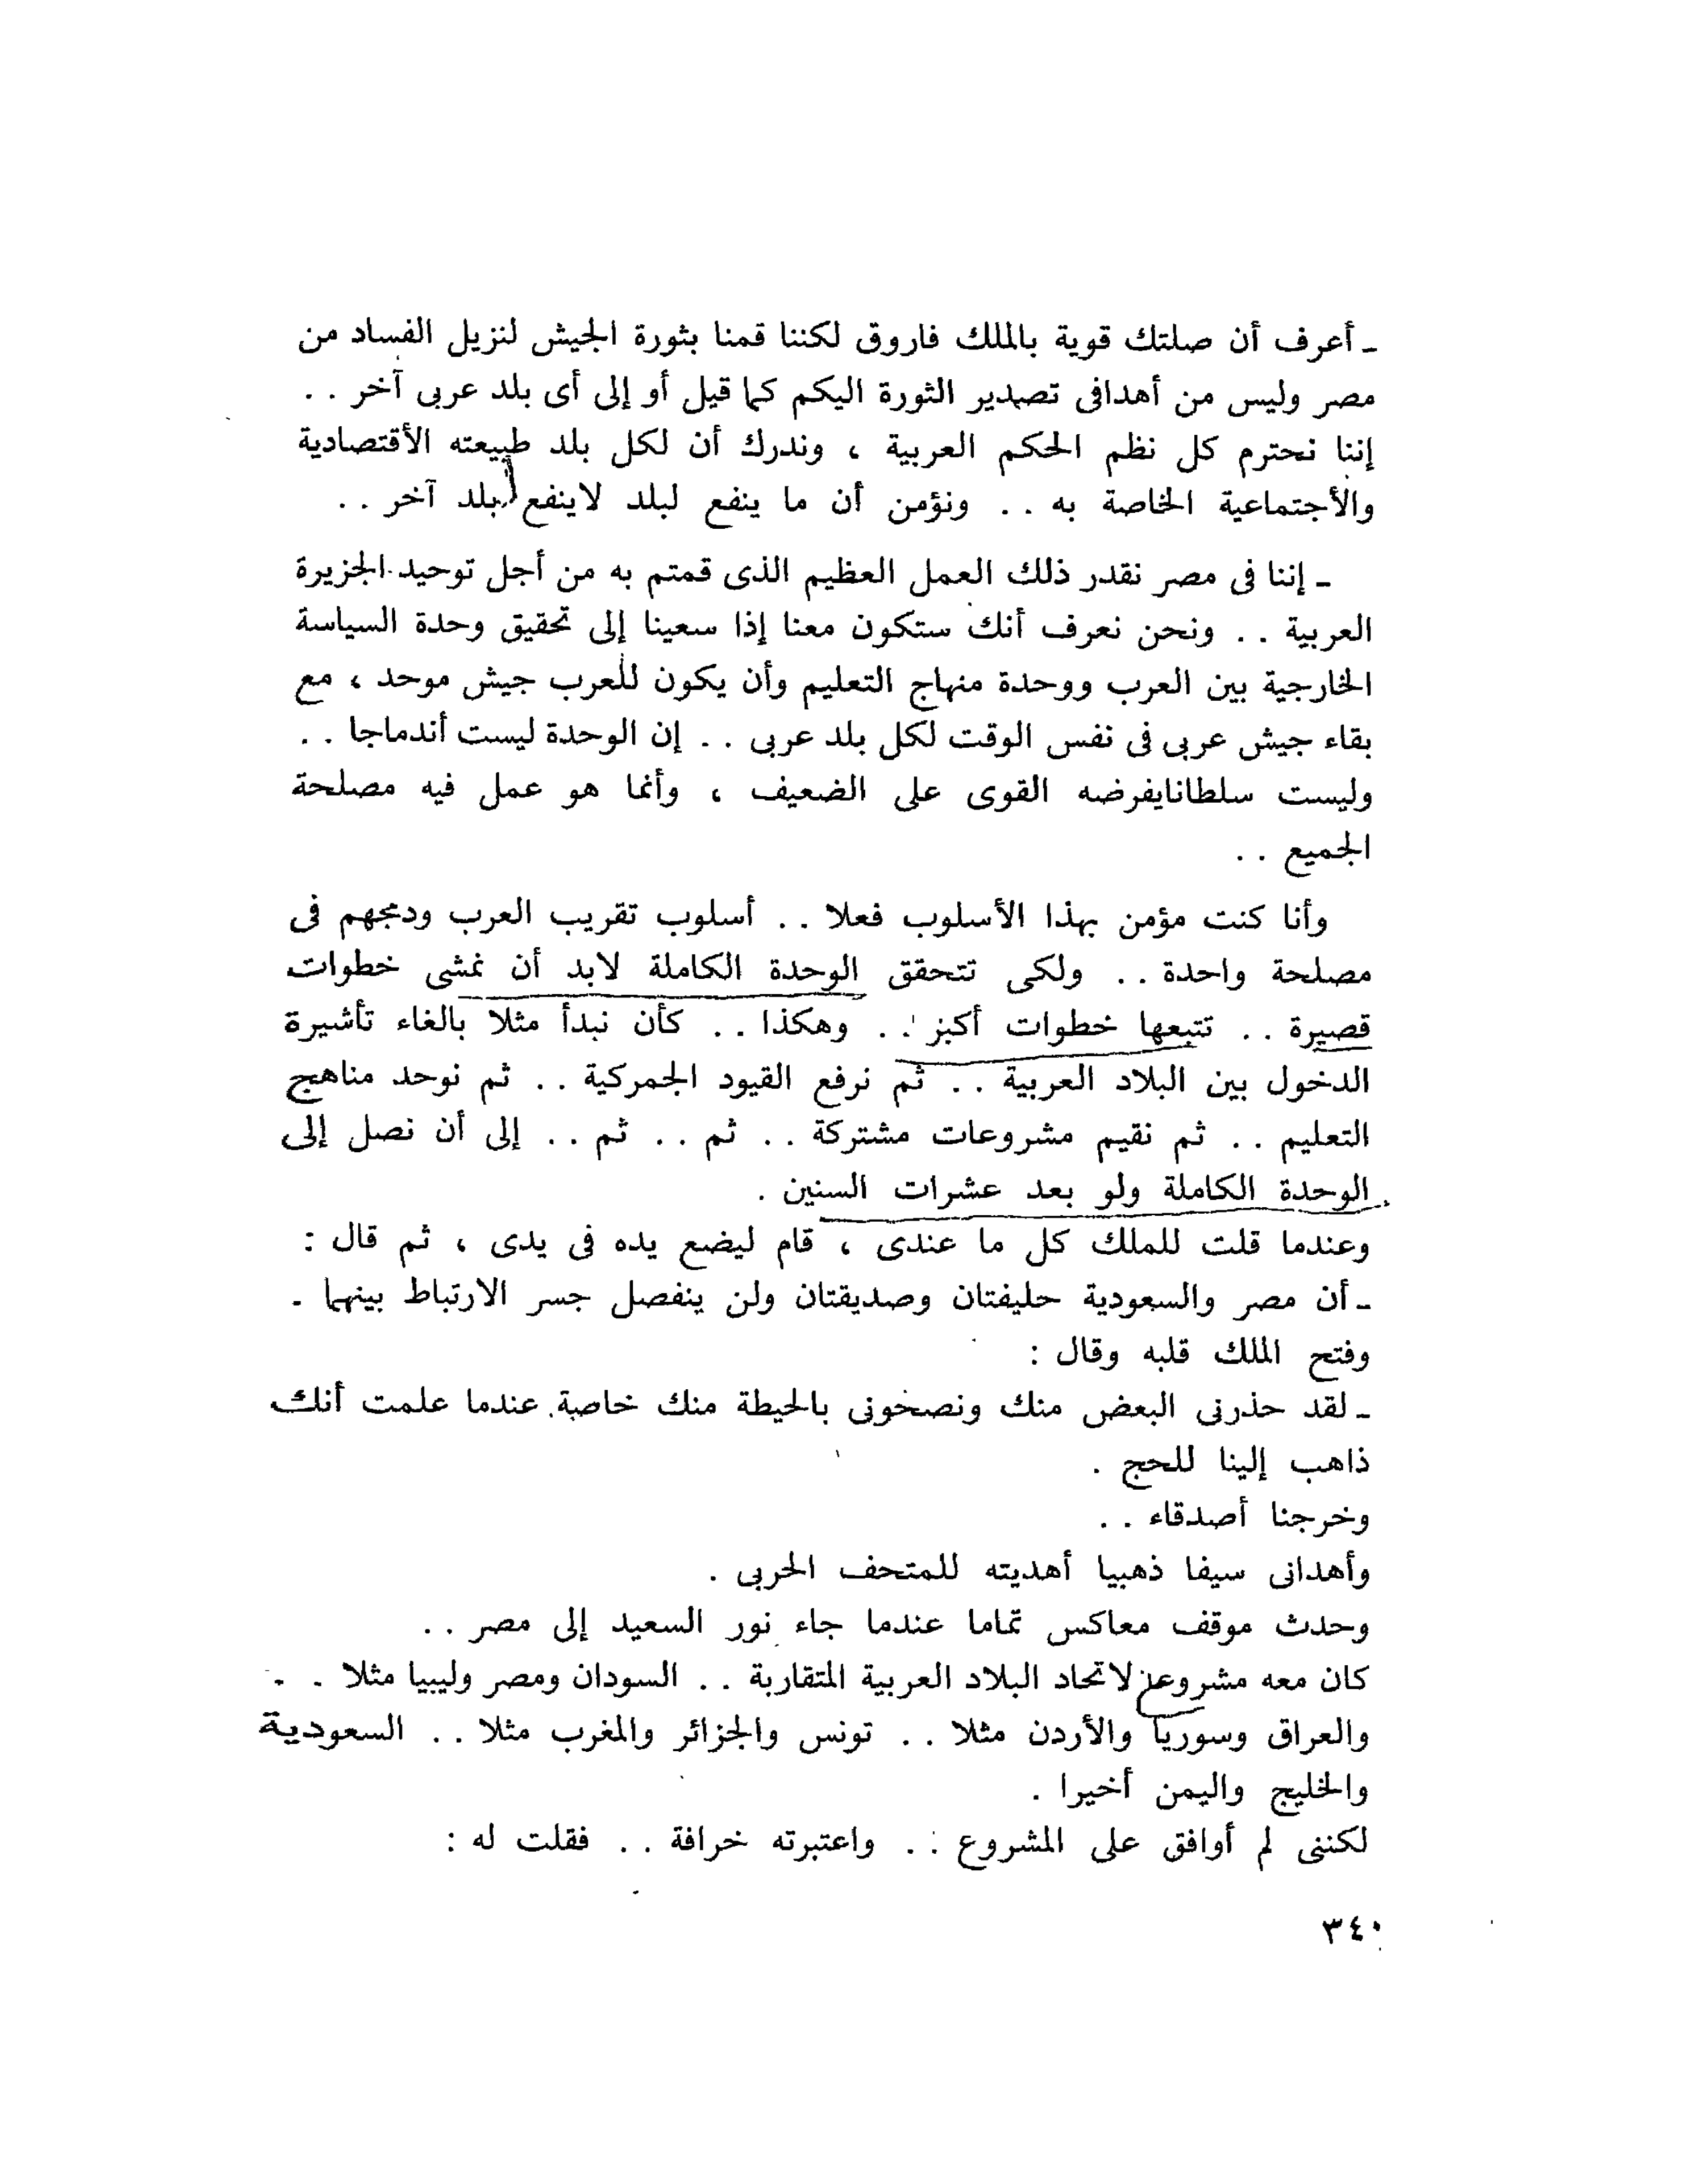 ـ أعرف أن صلتك قوية بالملك فاروق لكننا قمنا بثورة الجيش لنزيل الفساد من
مصر وليس من أهدافى تصدير الثورة اليكم كما قيل أو إلى أى بلد عربى آخر . .
إننا نحترم كل نظم الحكم العربية ، وندرك أن لكل بلد طبيعته الأقتصادية
والأجتماعية الخاصة به . . ونؤمن أن ما ينفع لبلد لاينفع لبلد آخر . .
ـ إننا فى مصر نقدر ذلك العمل العظيم الذى قمتم به من أجل توحيد الجزيرة
العربية . . ونحن نعرف أنك ستكون معنا إذا سعينا إلى تحقيق وحدة السياسة
الخارجية بين العرب ووحدة منهاج التعليم وأن يكون للعرب جيش موحد ، مع
بقاء جيش عربى فى نفس الوقت لكل بلد عربى . . إن الوحدة ليست أندماجا . .
وليست سلطانايفرضه القوى على الضعيف ، وأنما هو عمل فيه مصلحة
الجميع . .
وأنا كنت مؤمن بهذا الأسلوب فعلا . . أسلوب تقريب العرب ودمجهم فى
مصلحة واحدة . . ولكى تتحقق الوحدة الكاملة لابد أن نمشى خطوات
قصيرة . . تتبعها خطوات أكبر . . وهكذا . . كأن نبدأ مثلا بالغاء تأشيرة
الدخول بين البلاد العربية . . ثم نرفع القيود الجمركية . . ثم نوحد مناهج
التعليم . . ثم نقيم مشروعات مشتركة . . ثم . . ثم . . إلى أن نصل إلى
الوحدة الكاملة ولو بعد عشرات السنين .
وعندما قلت للملك كل ما عندى ، قام ليضع يده فى يدى ، ثم قال :
ـ أن مصر والسعودية حليفتان وصديقتان ولن ينفصل جسر الارتباط بينهما .
وفتح الملك قلبه وقال :
ـ لقد حذرنى البعض منك ونصحونى بالحيطة منك خاصة عندما علمت أنك
ذاهب إلينا للحج .
وخرجنا أصدقاء . .
وأهدانى سيفا ذهبيا أهديته للمتحف الحربى .
وحدث موقف معاكس تماما عندما جاء نور السعيد إلى مصر . .
كان معه مشروع لاتحاد البلاد العربية المتقاربة . . السودان ومصر وليبيا مثلا . .
والعراق وسوريا والأردن مثلا . . تونس والجزائر والمغرب مثلا . . السعودية
والخليج واليمن أخيرا .
لكننى لم أوافق على المشروع . . واعتبرته خرافة . . فقلت له :
٣٤٠